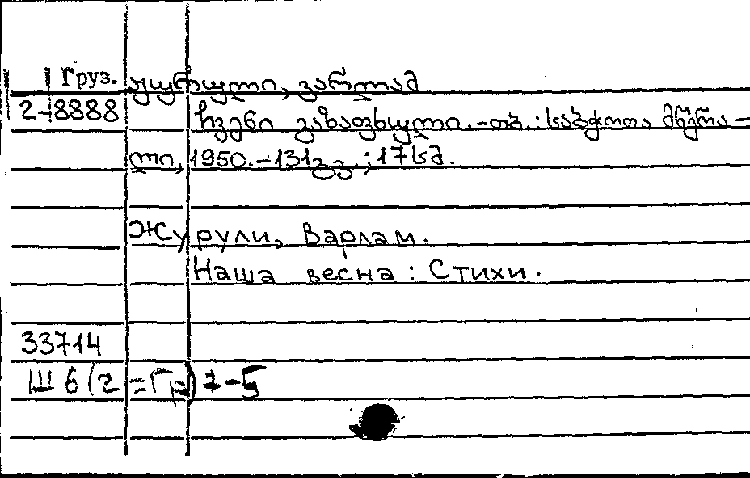 Груз. ჟურული, ვარლამ
2-8888 ჩვენი გაზაფხული.-თბ.: საბჭოთა მწერა-
ლი, 1950.-131გვ.; 17სმ.
Журули, Варлам.
Наша весна: Стихи.
33714
Ш 6(2=Гр)7-5